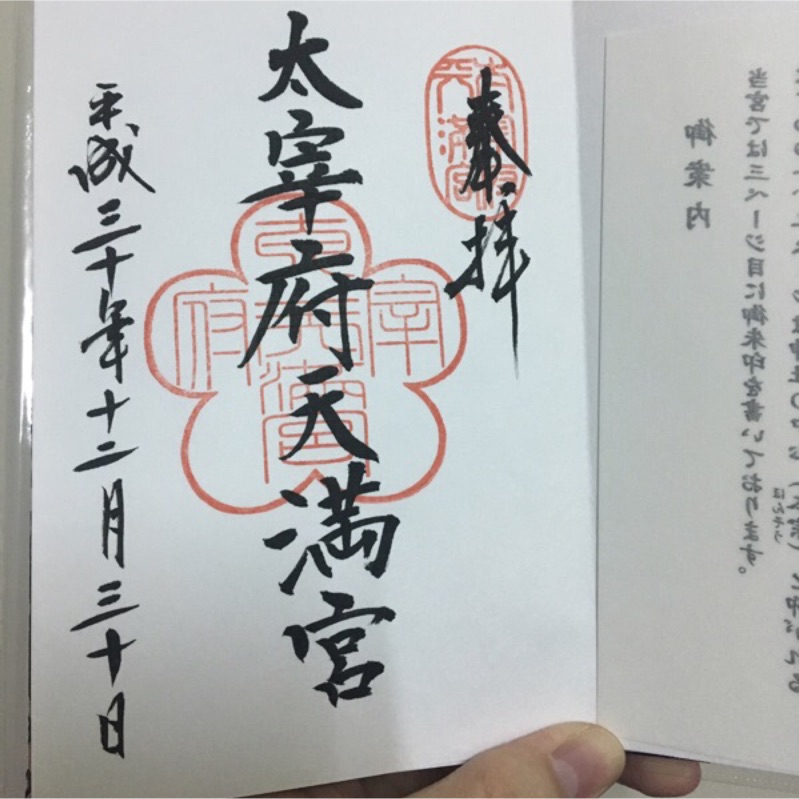 奉拝
太宰府天満宮
太宰府天満宮
平成三十年十二月三十日
御案内
当宮では三ページ目に御朱印を書いております。